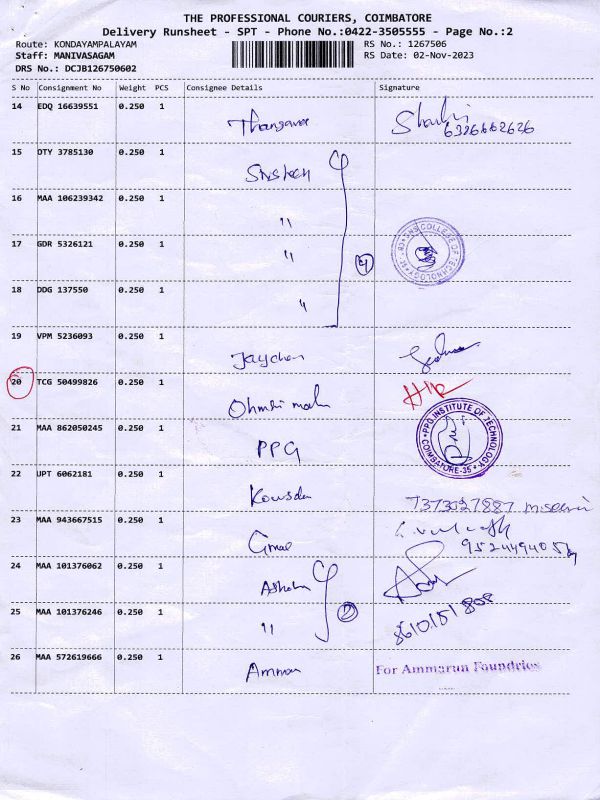 THE PROFESSIONAL COURIERS, COIMBATORE
Delivery Runsheet - SPT - Phone No.:0422-3505555 - Page No.:2
Route: KONDAYAMPALAYAM
RS No.: 1267506
Staff: MANIVASAGAM
RS Date: 02-Nov-2023
DRS No.: DCJB126750602
S No Consignment No Weight PCS Consignee Details Signature
14 EDQ 16639551 0.250 1
6326662626
15 OTY 3785130 0.250 1
16 MAA 106239342 0.250 1 "
17 GDR 5326121 0.250 1 " 4
SNS COLLEGE OF TECHNOLOGY
18 DDG 137550 0.250 1 "
19 VPM 5236093 0.250 1
20 TCG 50499826 0.250 1
21 MAA 862050245 0.250 1 PPG
PPG INSTITUTE OF TECHNOLOGY
COIMBATORE-35
22 UPT 6062181 0.250 1
7373027887
23 MAA 943667515 0.250 1
24 MAA 101376062 0.250 1
25 MAA 101376246 0.250 1 " 2
8610151808
26 MAA 572619666 0.250 1 Amman
For Ammarun Foundries